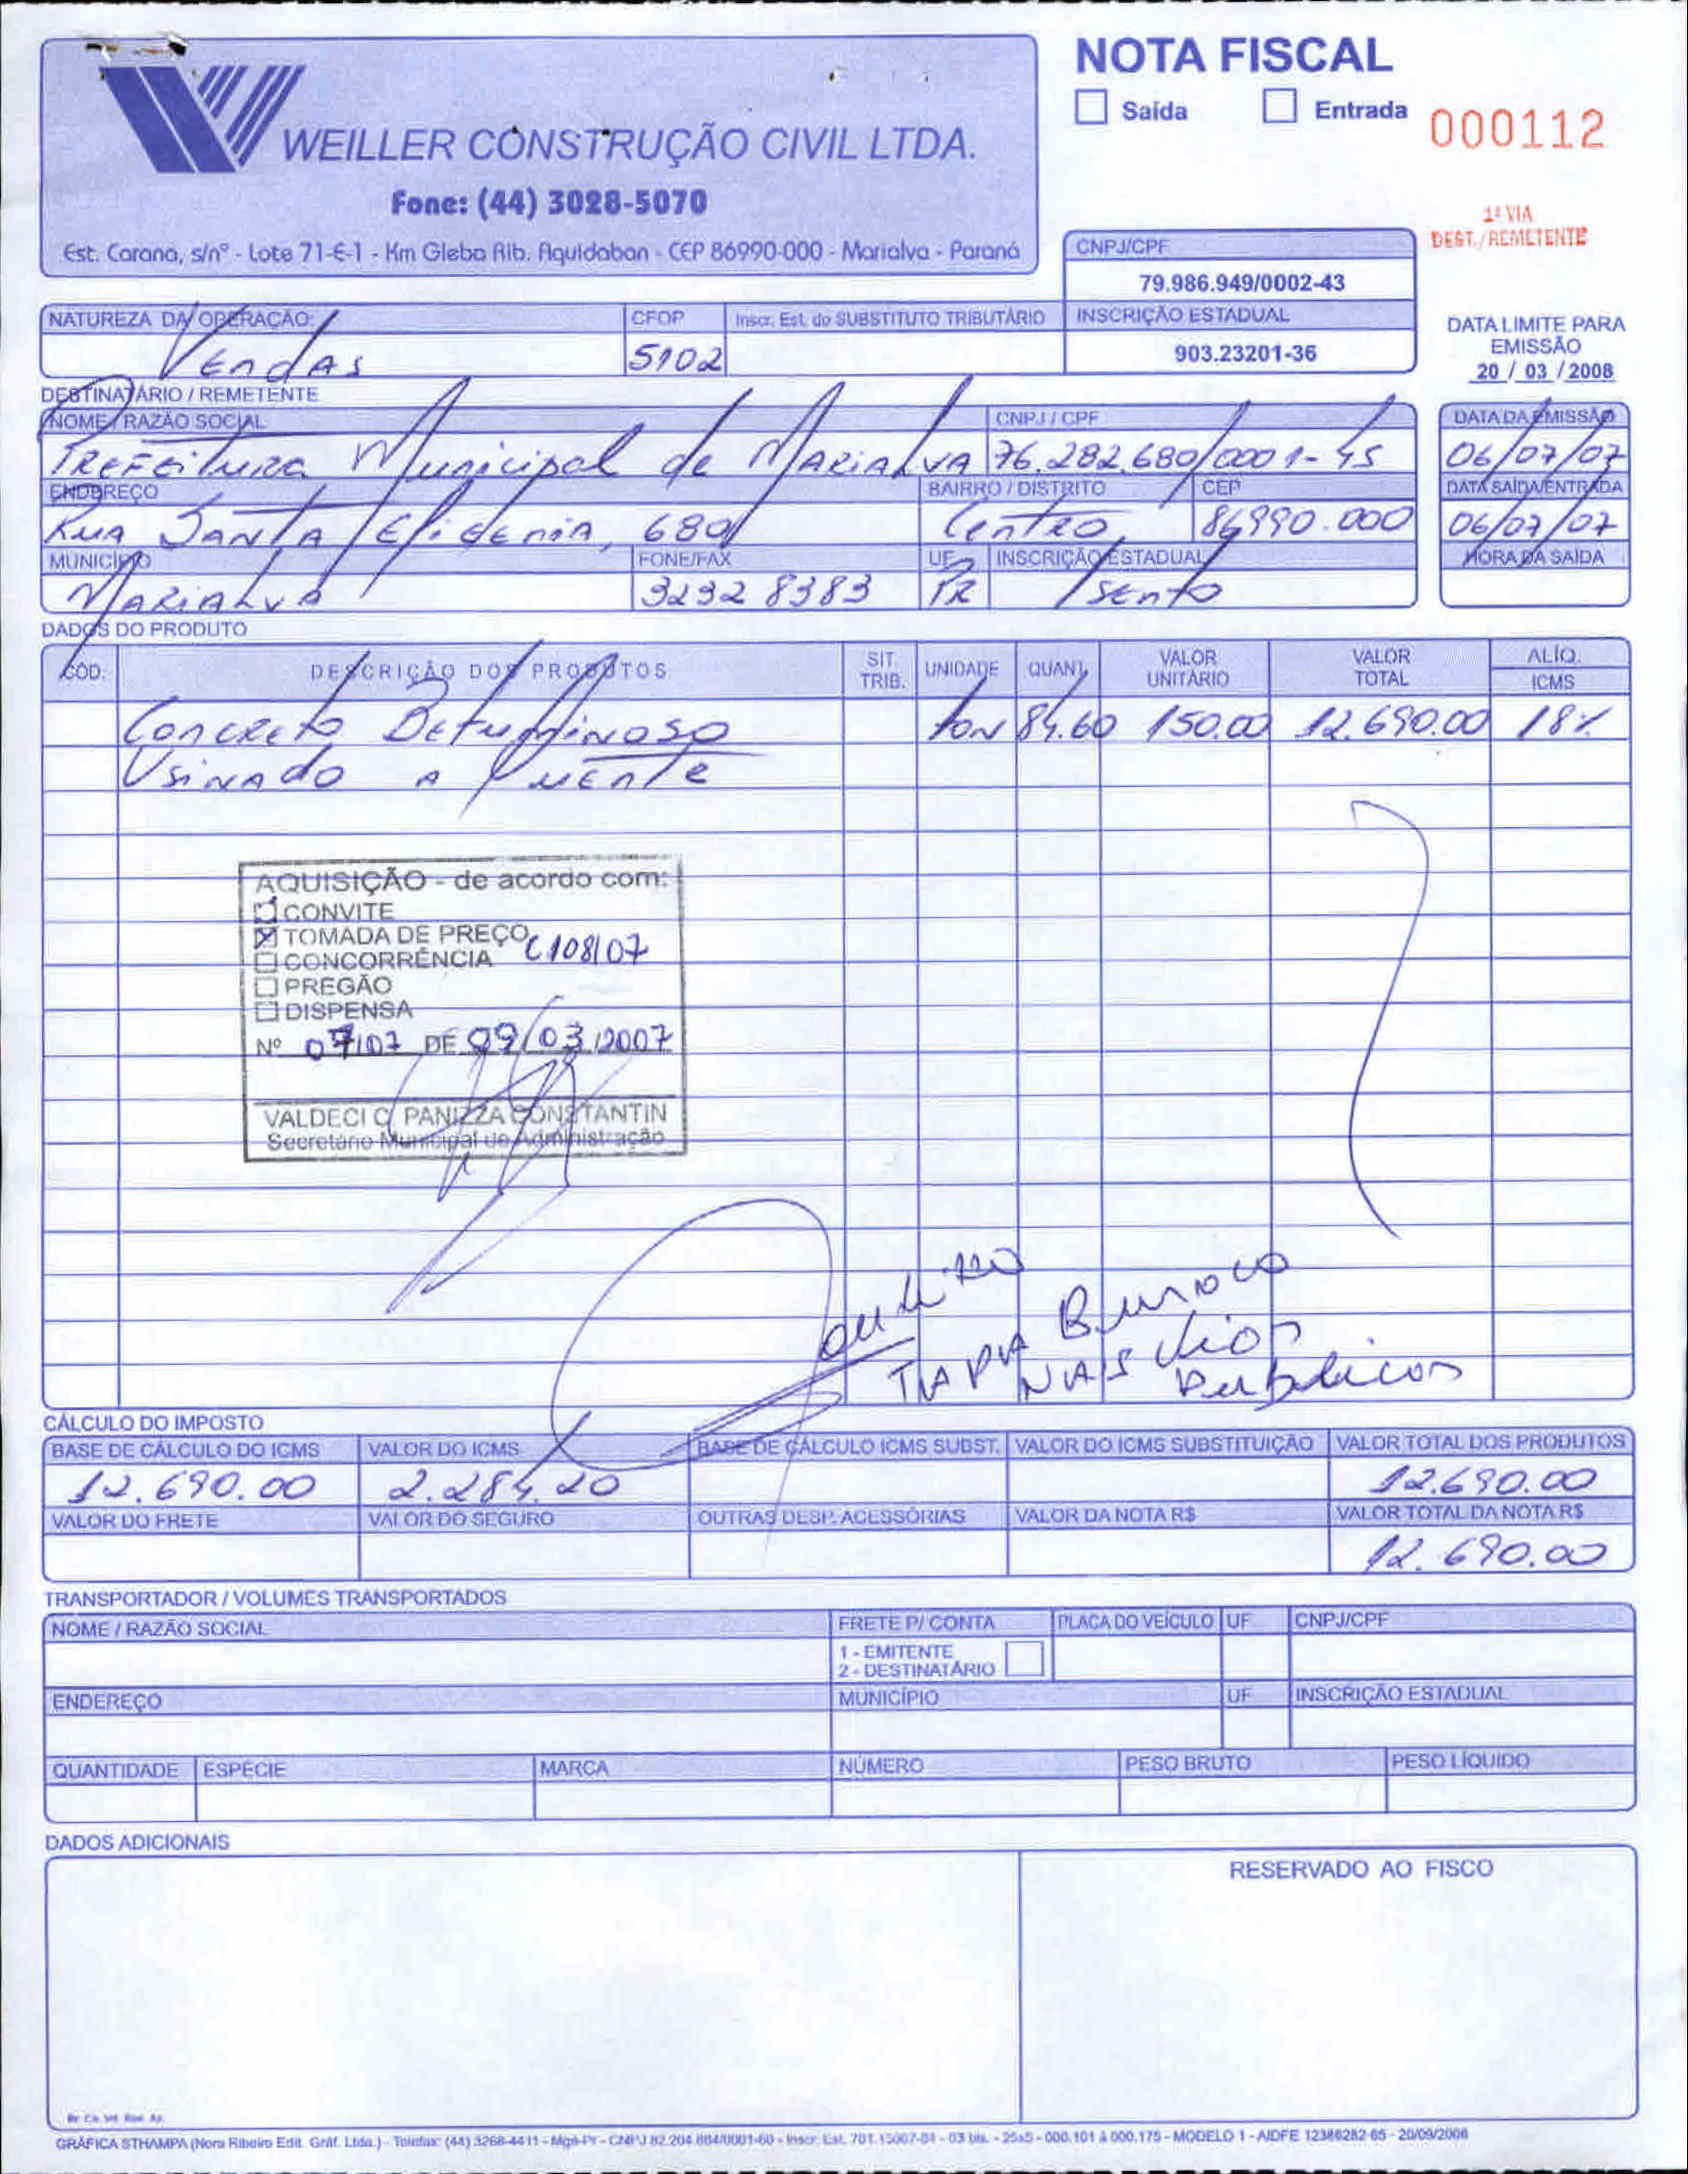 NOTA FISCAL
Saída Entrada
000112
WEILLER CONSTRUÇÃO CIVIL LTDA.
Fone: (44) 3028-5070
Est. Carana, s/nº - Lote 71-E-1 - Km Gleba Rib. Aquidaban - CEP 86990-000 - Marialva - Paraná
1ª VIA
DEST./REMETENTE
CNPJ/CPF
79.986.949/0002-43
NATUREZA DA OPERAÇÃO CFOP Inscr. Est. do SUBSTITUTO TRIBUTÁRIO INSCRIÇÃO ESTADUAL
Vendas 5102 903.23201-36
DATA LIMITE PARA
EMISSÃO
20 / 03 / 2008
DESTINATÁRIO / REMETENTE
NOME / RAZÃO SOCIAL CNPJ / CPF DATA DA EMISSÃO
Prefeitura Municipal de Marialva 76.282.680/0001-45 06/07/07
ENDEREÇO BAIRRO / DISTRITO CEP DATA SAÍDA/ENTRADA
Rua Santa Efigenia, 680 Centro 86990.000 06/07/07
MUNICÍPIO FONE/FAX UF INSCRIÇÃO ESTADUAL HORA DA SAÍDA
Marialva 3232 8383 PR Isento
DADOS DO PRODUTO
CÓD. DESCRIÇÃO DOS PRODUTOS SIT. TRIB. UNIDADE QUANT. VALOR UNITÁRIO VALOR TOTAL ALÍQ. ICMS
Concreto Betuminoso Ton 84.60 150.00 12.690.00 18%
Usinado a Quente
AQUISIÇÃO - de acordo com:
CONVITE
TOMADA DE PREÇO
C108/07
CONCORRÊNCIA
PREGÃO
DISPENSA
Nº 07/07 DE 09/03/2007
VALDECI C. PANIZZA CONSTANTIN
Secretário Municipal de Administração
TAPA Buraco
NAS Vios
Publicos
CÁLCULO DO IMPOSTO
BASE DE CÁLCULO DO ICMS VALOR DO ICMS BASE DE CÁLCULO ICMS SUBST. VALOR DO ICMS SUBSTITUIÇÃO VALOR TOTAL DOS PRODUTOS
12.690.00 2.284.20 12.690.00
VALOR DO FRETE VALOR DO SEGURO OUTRAS DESP. ACESSÓRIAS VALOR DA NOTA R$ VALOR TOTAL DA NOTA R$
12.690.00
TRANSPORTADOR / VOLUMES TRANSPORTADOS
NOME / RAZÃO SOCIAL FRETE P/ CONTA PLACA DO VEÍCULO UF CNPJ/CPF
1 - EMITENTE
2 - DESTINATÁRIO
ENDEREÇO MUNICÍPIO UF INSCRIÇÃO ESTADUAL
QUANTIDADE ESPÉCIE MARCA NÚMERO PESO BRUTO PESO LÍQUIDO
DADOS ADICIONAIS
RESERVADO AO FISCO
GRÁFICA STHAMPA (Nora Ribeiro Edit. Gráf. Ltda.) - Telefax: (44) 3268-4411 - Mgá-Pr - CNPJ 82.204.884/0001-60 - Inscr. Est. 701.15007-84 - 03 bls. - 25x5 - 000.101 à 000.175 - MODELO 1 - AIDFE 12386282-65 - 20/09/2006